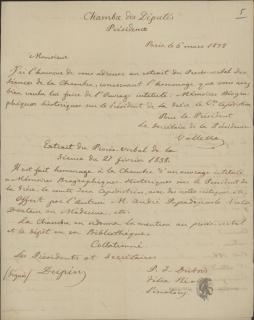 5
Chambre des Députés
Présidence
Paris le 6 mars 1838
Monsieur
J'ai l'honneur de vous adresser un extrait du Procès-verbal des
séances de la Chambre, concernant l'hommage que vous avez
bien voulu lui faire de l'Ouvrage intitulé: Mémoires Biogra-
phiques historiques sur le Président de la Grèce le Cte Capodistrias
Pour le Président
Le Secrétaire de la Présidence
Vallette
Extrait du Procès-Verbal de la
Séance du 27 février 1838.
Il est fait hommage à la Chambre d'un ouvrage intitulé
Mémoires Biographiques-Historiques sur le Président de
la Grèce, le comte Jean Capodistrias, avec des notes
Offert par l'Auteur M. André Papadopoulo
Docteur en Médecine, etc.
La Chambre en ordonne la mention au procès verbal
et le dépôt en sa Bibliothèque.
Collationné
Les Présidents et Secrétaires
(signé) Dupin